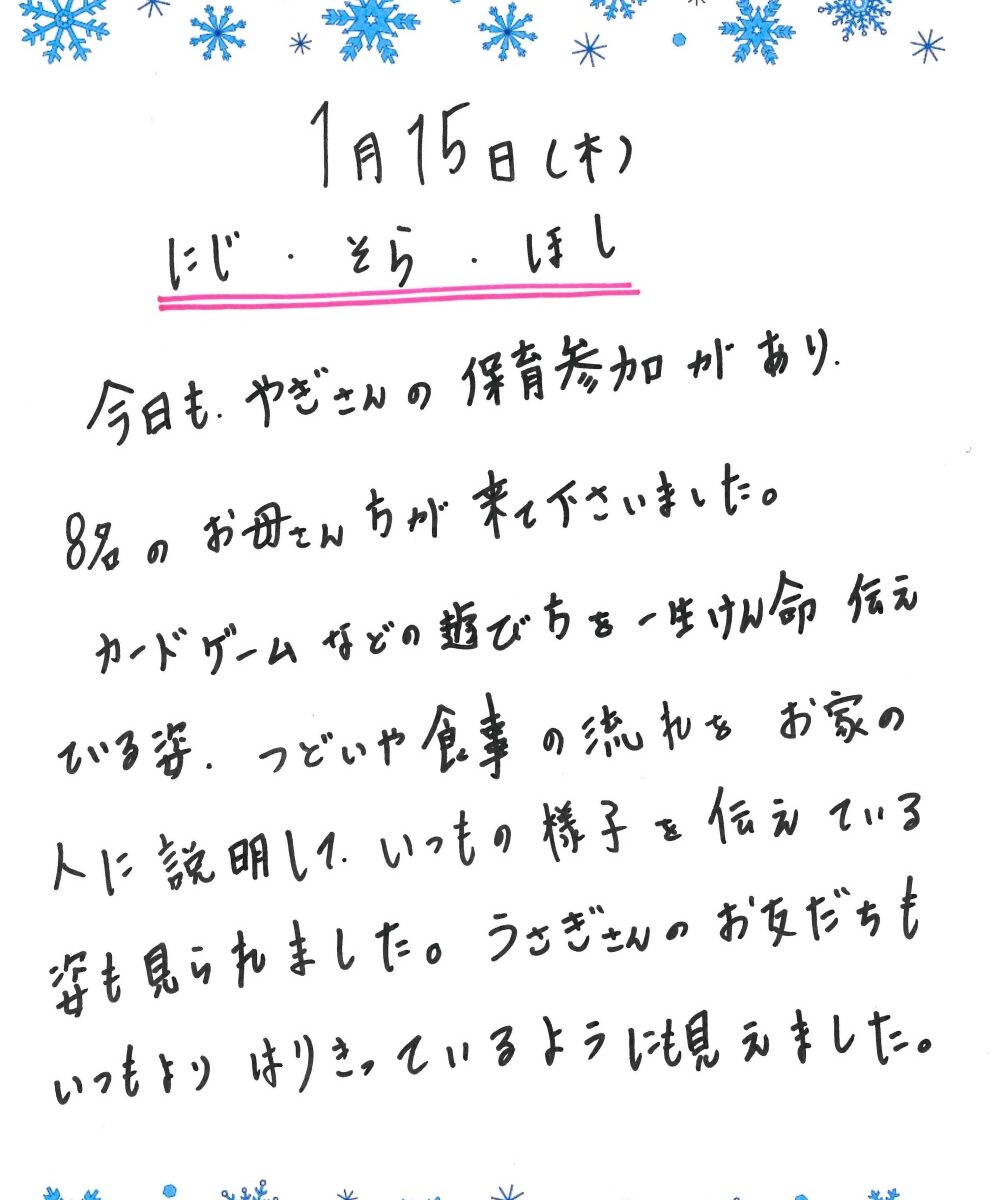 1月15日(木)
にじ・そら・ほし
今日も、やぎさんの保育参加があり、
8名のお母さん方が来て下さいました。
カードゲームなどの遊び方を一生けん命伝え
ている姿、つどいや食事の流れをお家の
人に説明して、いつもの様子を伝えている
姿も見られました。うさぎさんのお友だちも
いつもよりはりきっているようにも見えました。